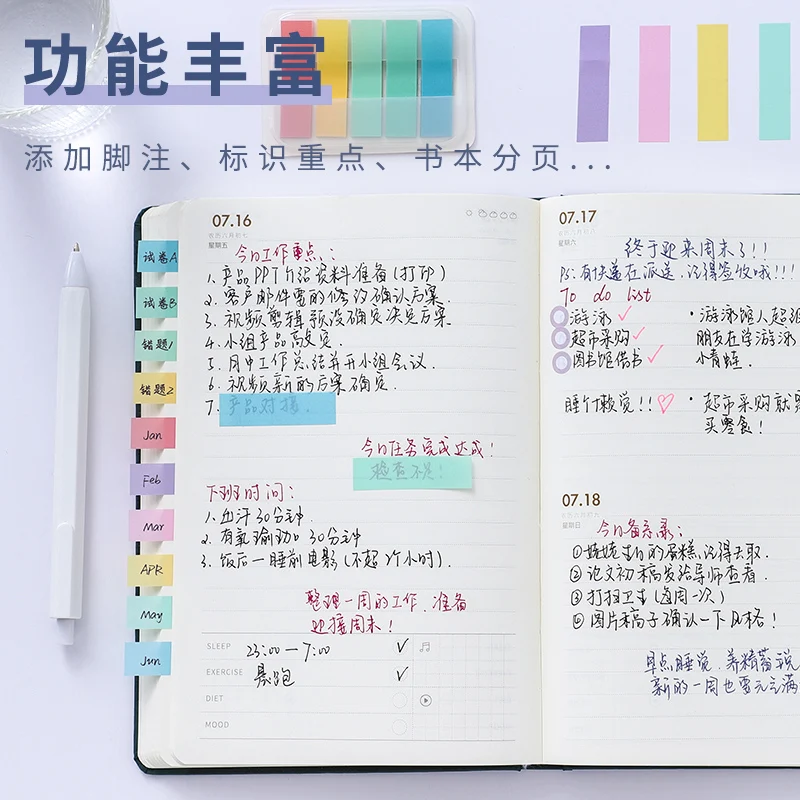 功能丰富
添加脚注、标识重点、书本分页...
07.16
农历六月初七
星期五
今日工作重点:
1. 产品PPT介绍资料准备(打印)
2. 客户邮件需的修改确认后案.
3. 视频剪辑预设确定决定后案
4. 小组产品高效定.
5. 月中工作总结并开小组会议.
6. 视频新的后案确定.
7. 产品对接.
今日任务完成达成!
检查不足!
下班时间:
1. 出汗30分钟.
2. 有氧瑜珈 30分钟
3. 饭后一睡前电影(不超2个小时).
整理一周的工作.准备
迎接周末!
SLEEP 23:00 — 7:00 ✓
EXERCISE 晨跑 ✓
DIET
MOOD
试卷A
试卷B
错题1
错题2
Jan
Feb
Mar
APR
May
Jun
07.17
农历六月初八
星期六
终于迎来周末了!!
PS: 有快递在派送,记得签收哦!!!
To do list
游泳 ✓
超市采购 ✓
图书馆借书 ✓
睡个懒觉!! ♡
• 游泳馆人超级
朋友在学游泳
小青蛙.
• 超市采购就是
买零食!
07.18
农历六月初九
星期日
今日备忘录:
① 姥姥生日的蛋糕,记得去取.
② 论文初稿发给导师查看.
③ 打扫卫生(每周一次)
④ 图片稿子确认一下风格!
早点睡觉.养精蓄锐
新的一周也要元气满